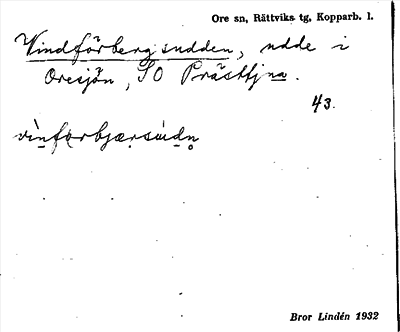 Ore sn, Rättviks tg, Kopparb. l.
Vindförbergsudden, udde i
Oresjön, SO Prästtjna.
43.
vìnfərbjærsùdn̥
Bror Lindén 1932